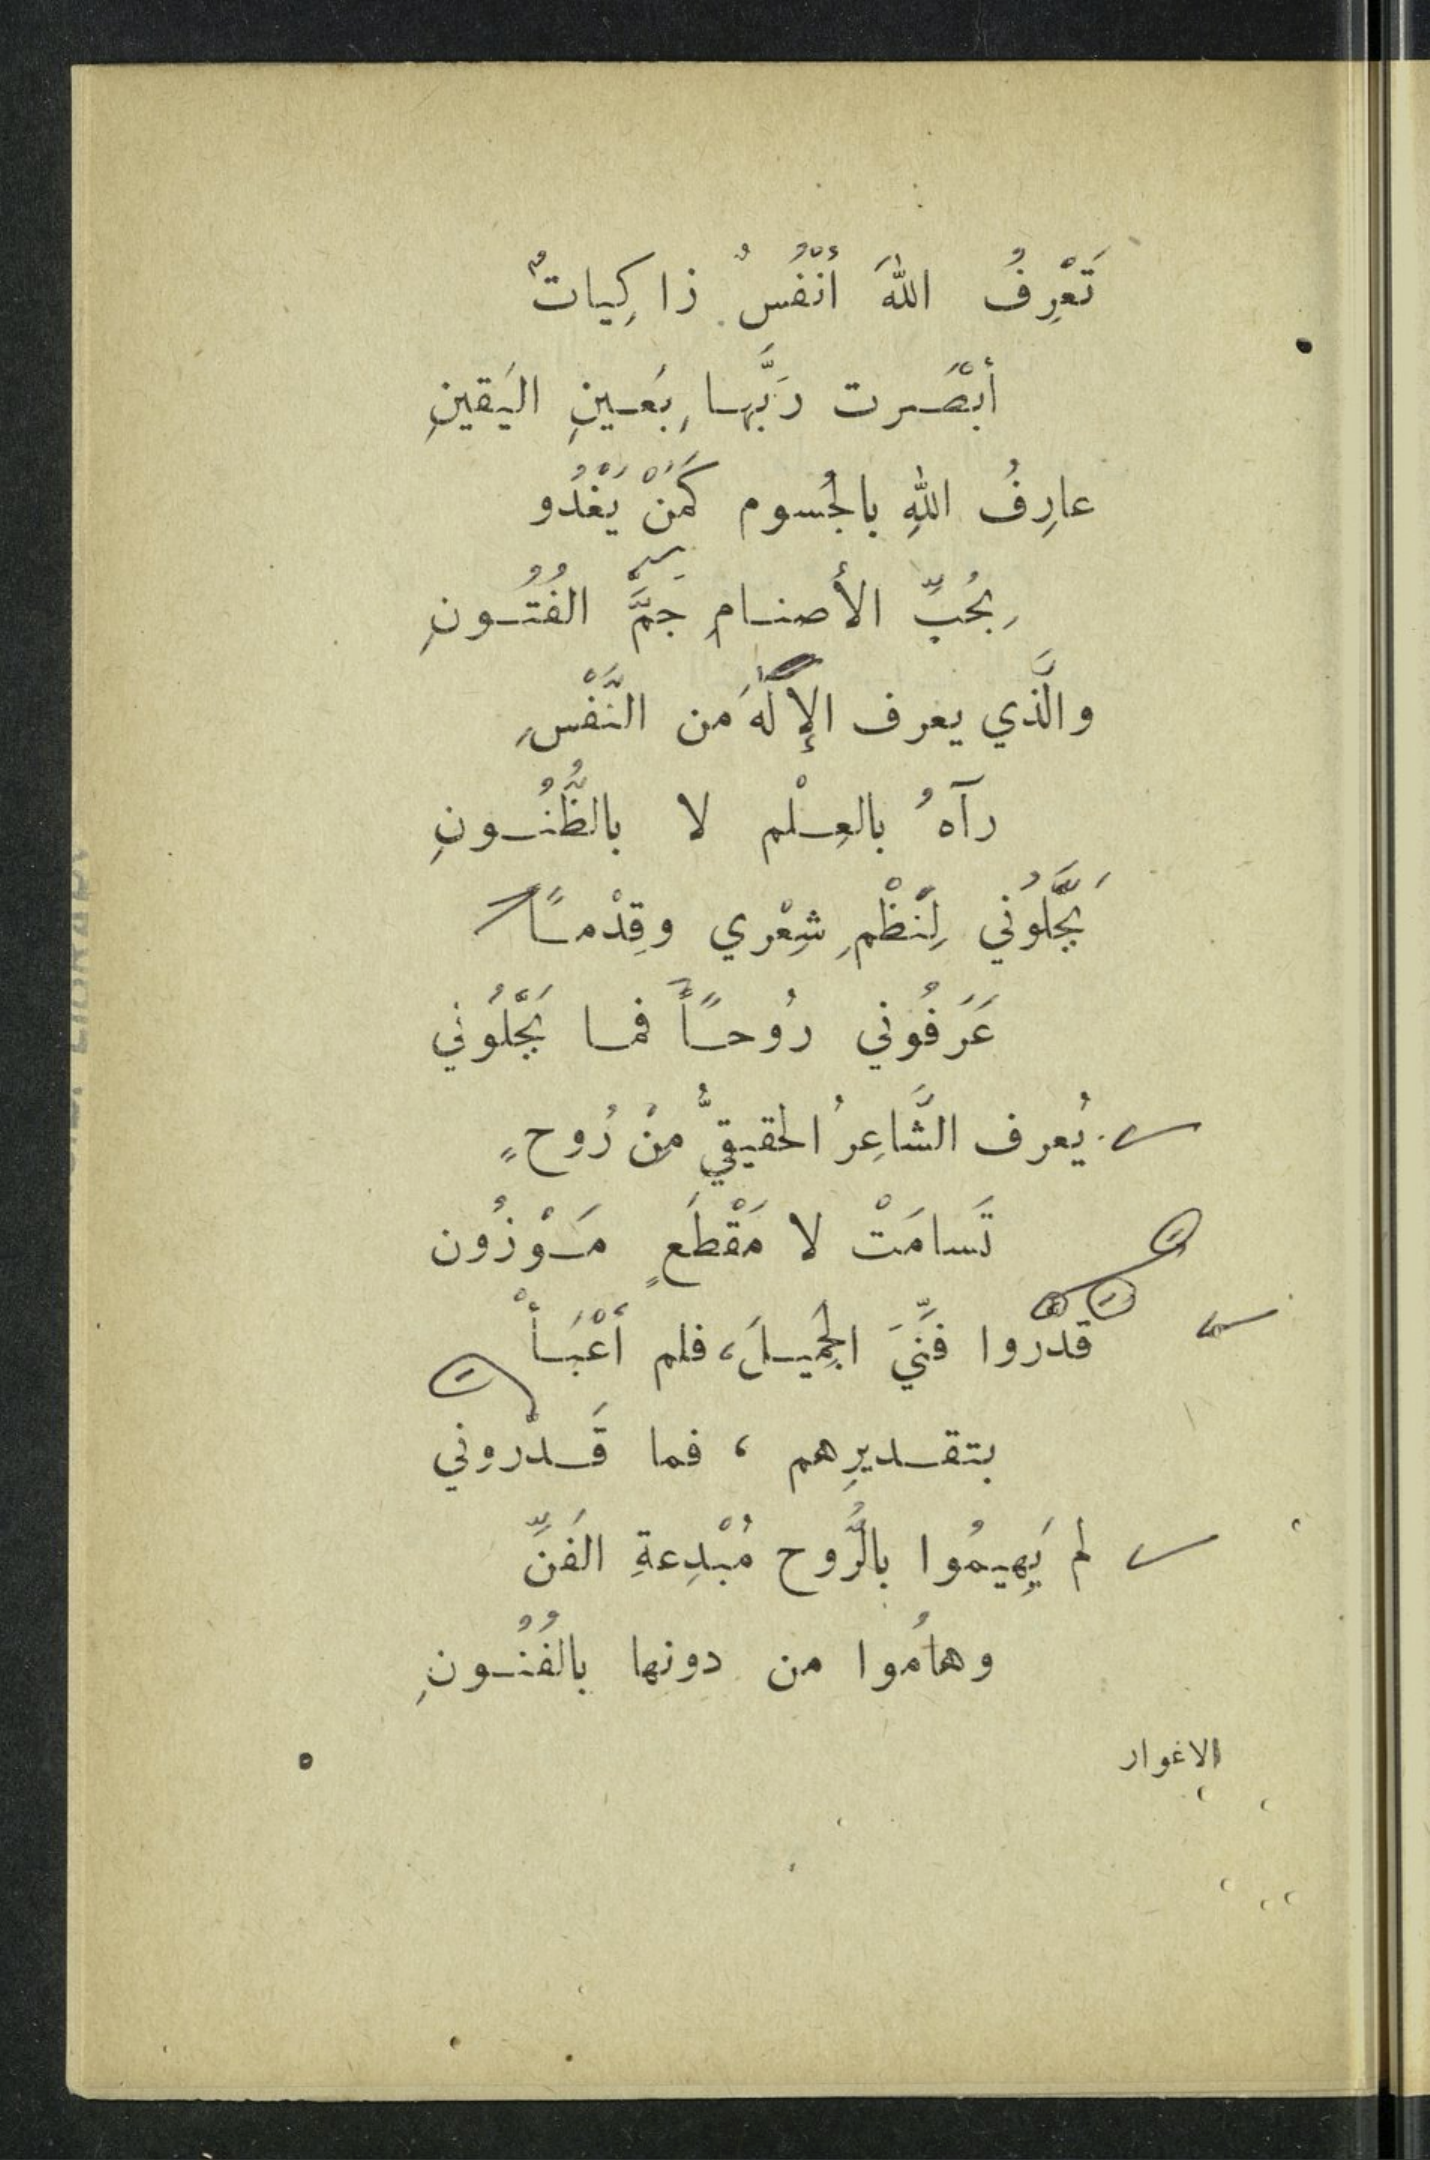 تَعْرِفُ اللهَ أنْفُسٌ ذاكِياتٌ
أبْصَرت رَبَّها بِعَينِ اليَقينِ
عارِفُ اللهِ بالجُسوم كَمَنْ يَغْدُو
بِحُبِّ الأصنامِ جَمَّ الفُتُونِ
والَّذي يعرف الإلٰهَ من النَّفْسِ
رآهُ بالعِلْم لا بالظُّنُونِ
بَجَّلُوني لِنَظْمِ شِعْري وقِدْماً
عَرَفُوني رُوحاً فما بَجَّلُوني
يُعرف الشَّاعِرُ الحقيقيُّ مِنْ رُوحٍ
تَسامَتْ لا مَقْطَعٍ مَوْزُون
قدّروا فَنِّيَ الجَمِيلَ، فلم أَعْبَأْ
بتقديرِهم ، فما قَدّروني
لم يَهِيمُوا بالرُّوح مُبْدِعةِ الفَنِّ
وهامُوا من دونها بالفُنُونِ
الاغوار
٥